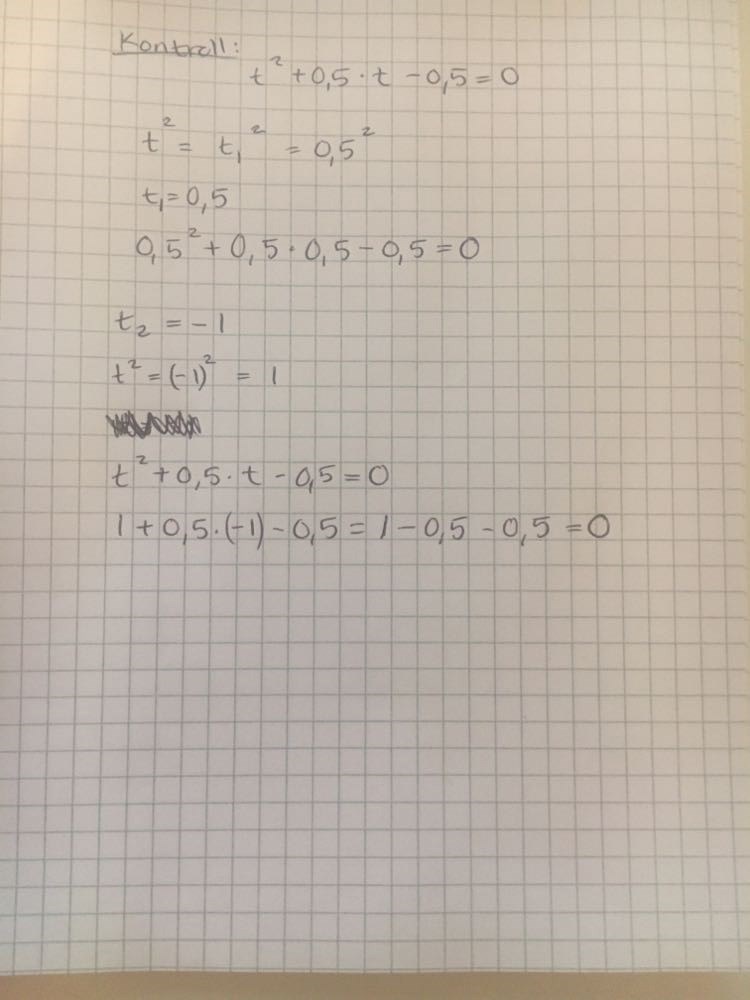 Kontroll:
t² + 0,5 · t - 0,5 = 0
t² = t₁² = 0,5²
t₁ = 0,5
0,5² + 0,5 · 0,5 - 0,5 = 0
t₂ = -1
t² = (-1)² = 1
t² + 0,5 · t - 0,5 = 0
1 + 0,5 · (-1) - 0,5 = 1 - 0,5 - 0,5 = 0